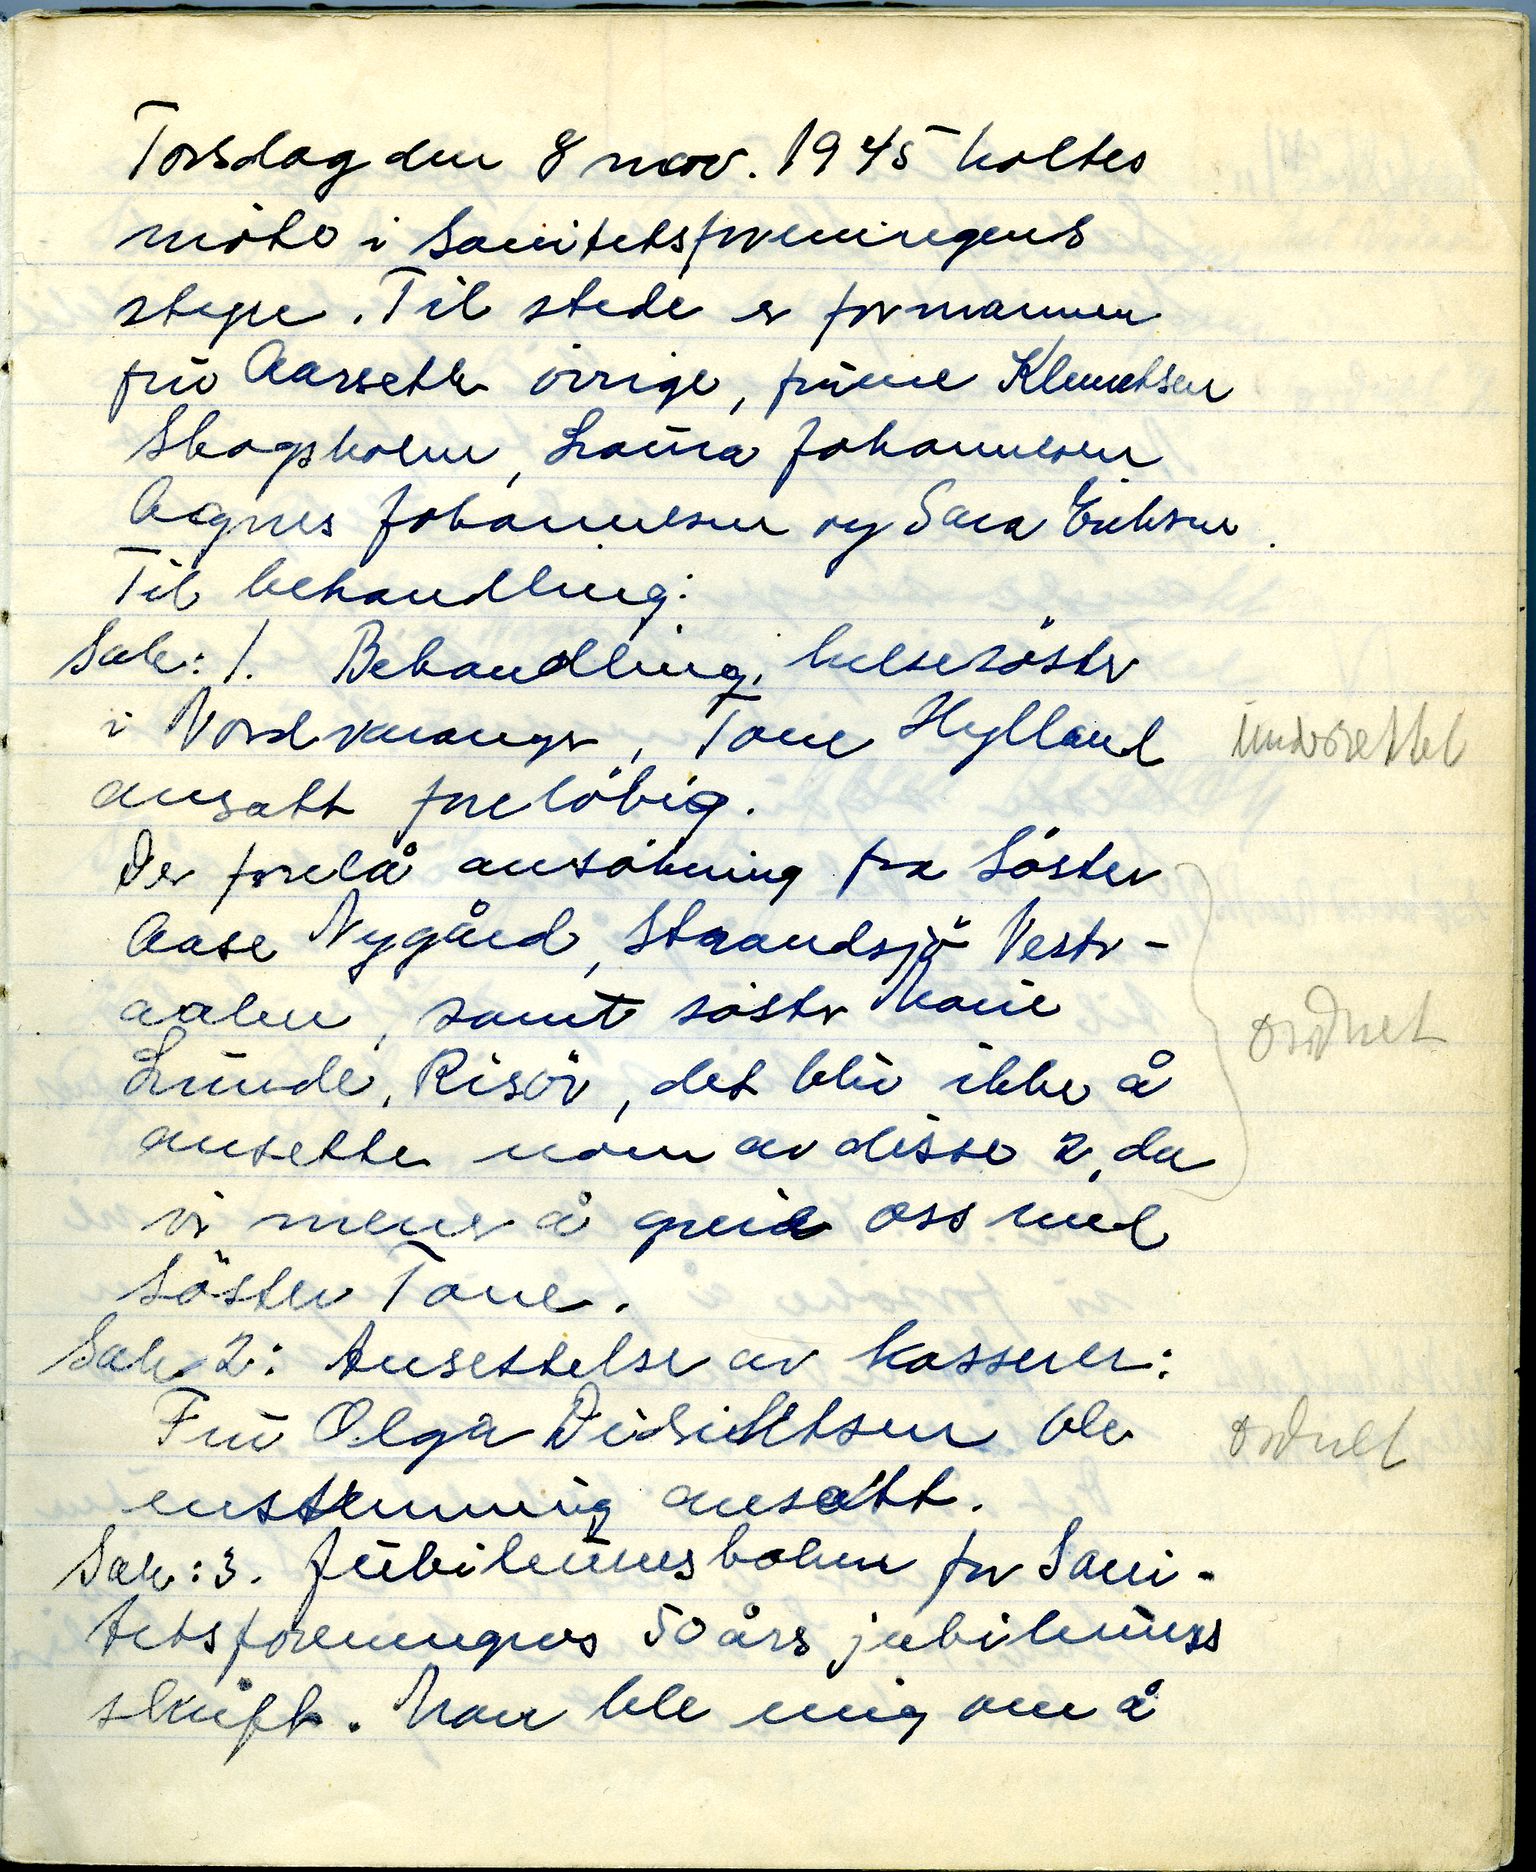 Torsdag den 8 nov. 1945 holtes
möte i Sanitetsforeningens
styre. Til stede er formannen
fru Aarsether övrige, fruene Klemetsen
Skogsholm, Laura Johannesen
Agnes Johannesen og Sara Eriksen.
Til behandling:
Sak: 1. Behandling, helsesöster
i Nordkvaranger, Tone Hylland
underrettet
ansatt forelöbig.
Der forelå ansökning fra Söster
Aase Nygård, Strandsjö Vester-
aalen, samt söster Marie
ordnet
Lunde, Risör, det blir ikke å
ansette noen av disse 2, da
vi mener å greie oss med
Söster Tone.
Sak 2: Ansettelse av kasserer:
Fru Olga Didriktsen ble
ordnet
enstemmig ansatt.
Sak: 3. Jubileumsboken for Sani-
tetsforeningens 50 års jubileums
skrift. Man ble enig om å